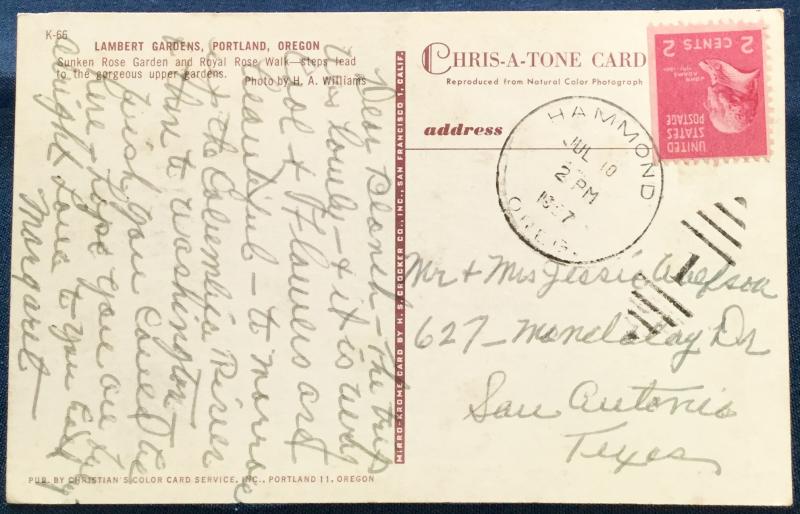 K-66
LAMBERT GARDENS, PORTLAND, OREGON
Sunken Rose Garden and Royal Rose Walk—steps lead
to the gorgeous upper gardens.
Photo by H. A. Williams
CHRIS-A-TONE CARD
Reproduced from Natural Color Photograph
address
UNITED
STATES
POSTAGE
JOHN ADAMS
2 CENTS 2
HAMMOND
JUL 10
2 PM
OREG.
MIRRO-KROME CARD BY H. S. CROCKER CO., INC., SAN FRANCISCO 1, CALIF.
Dear Blanch - The trip
is lovely - & it is very
cool & flowers are
beautiful - to morrow
& the Columbia River
then to Washington
finish you
here - hope you are
alright Love to you
Margaret
Mr + Mrs Jessie
627 - Mandalay Dr
San Antonio
Texas
PUB. BY CHRISTIAN'S COLOR CARD SERVICE, INC., PORTLAND 11, OREGON